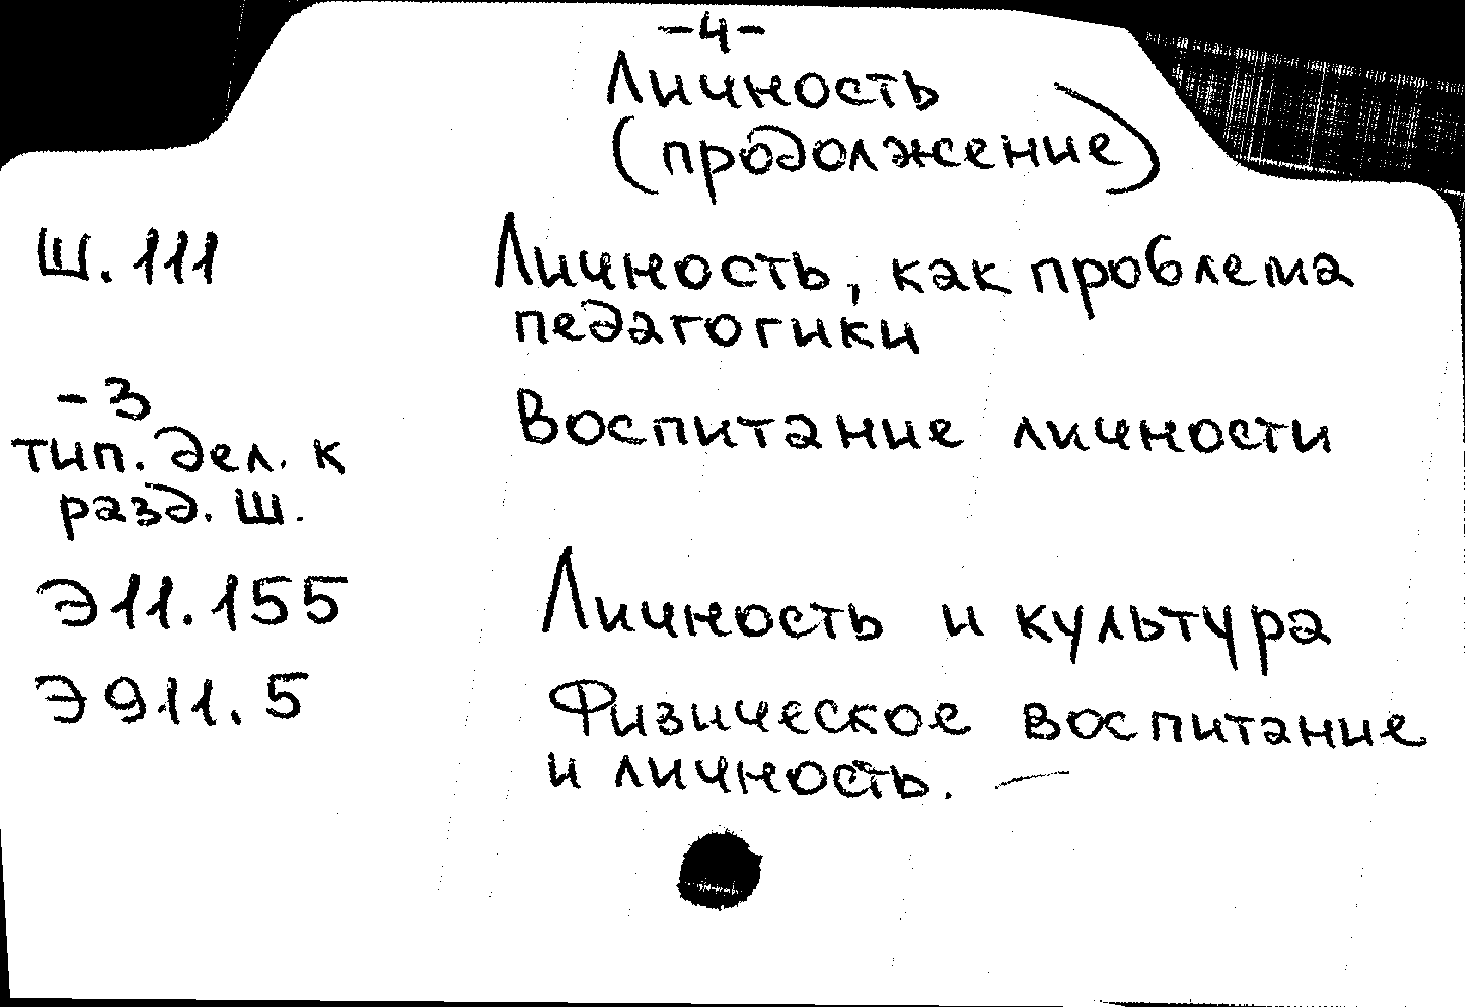 -4-
Личность
(продолжение)
Ш.111 Личность, как проблема
педагогики
-3 Воспитание личности
тип. дел. к
разд. Ш.
Э11.155 Личность и культура
Э911.5 Физическое воспитание
и личность.